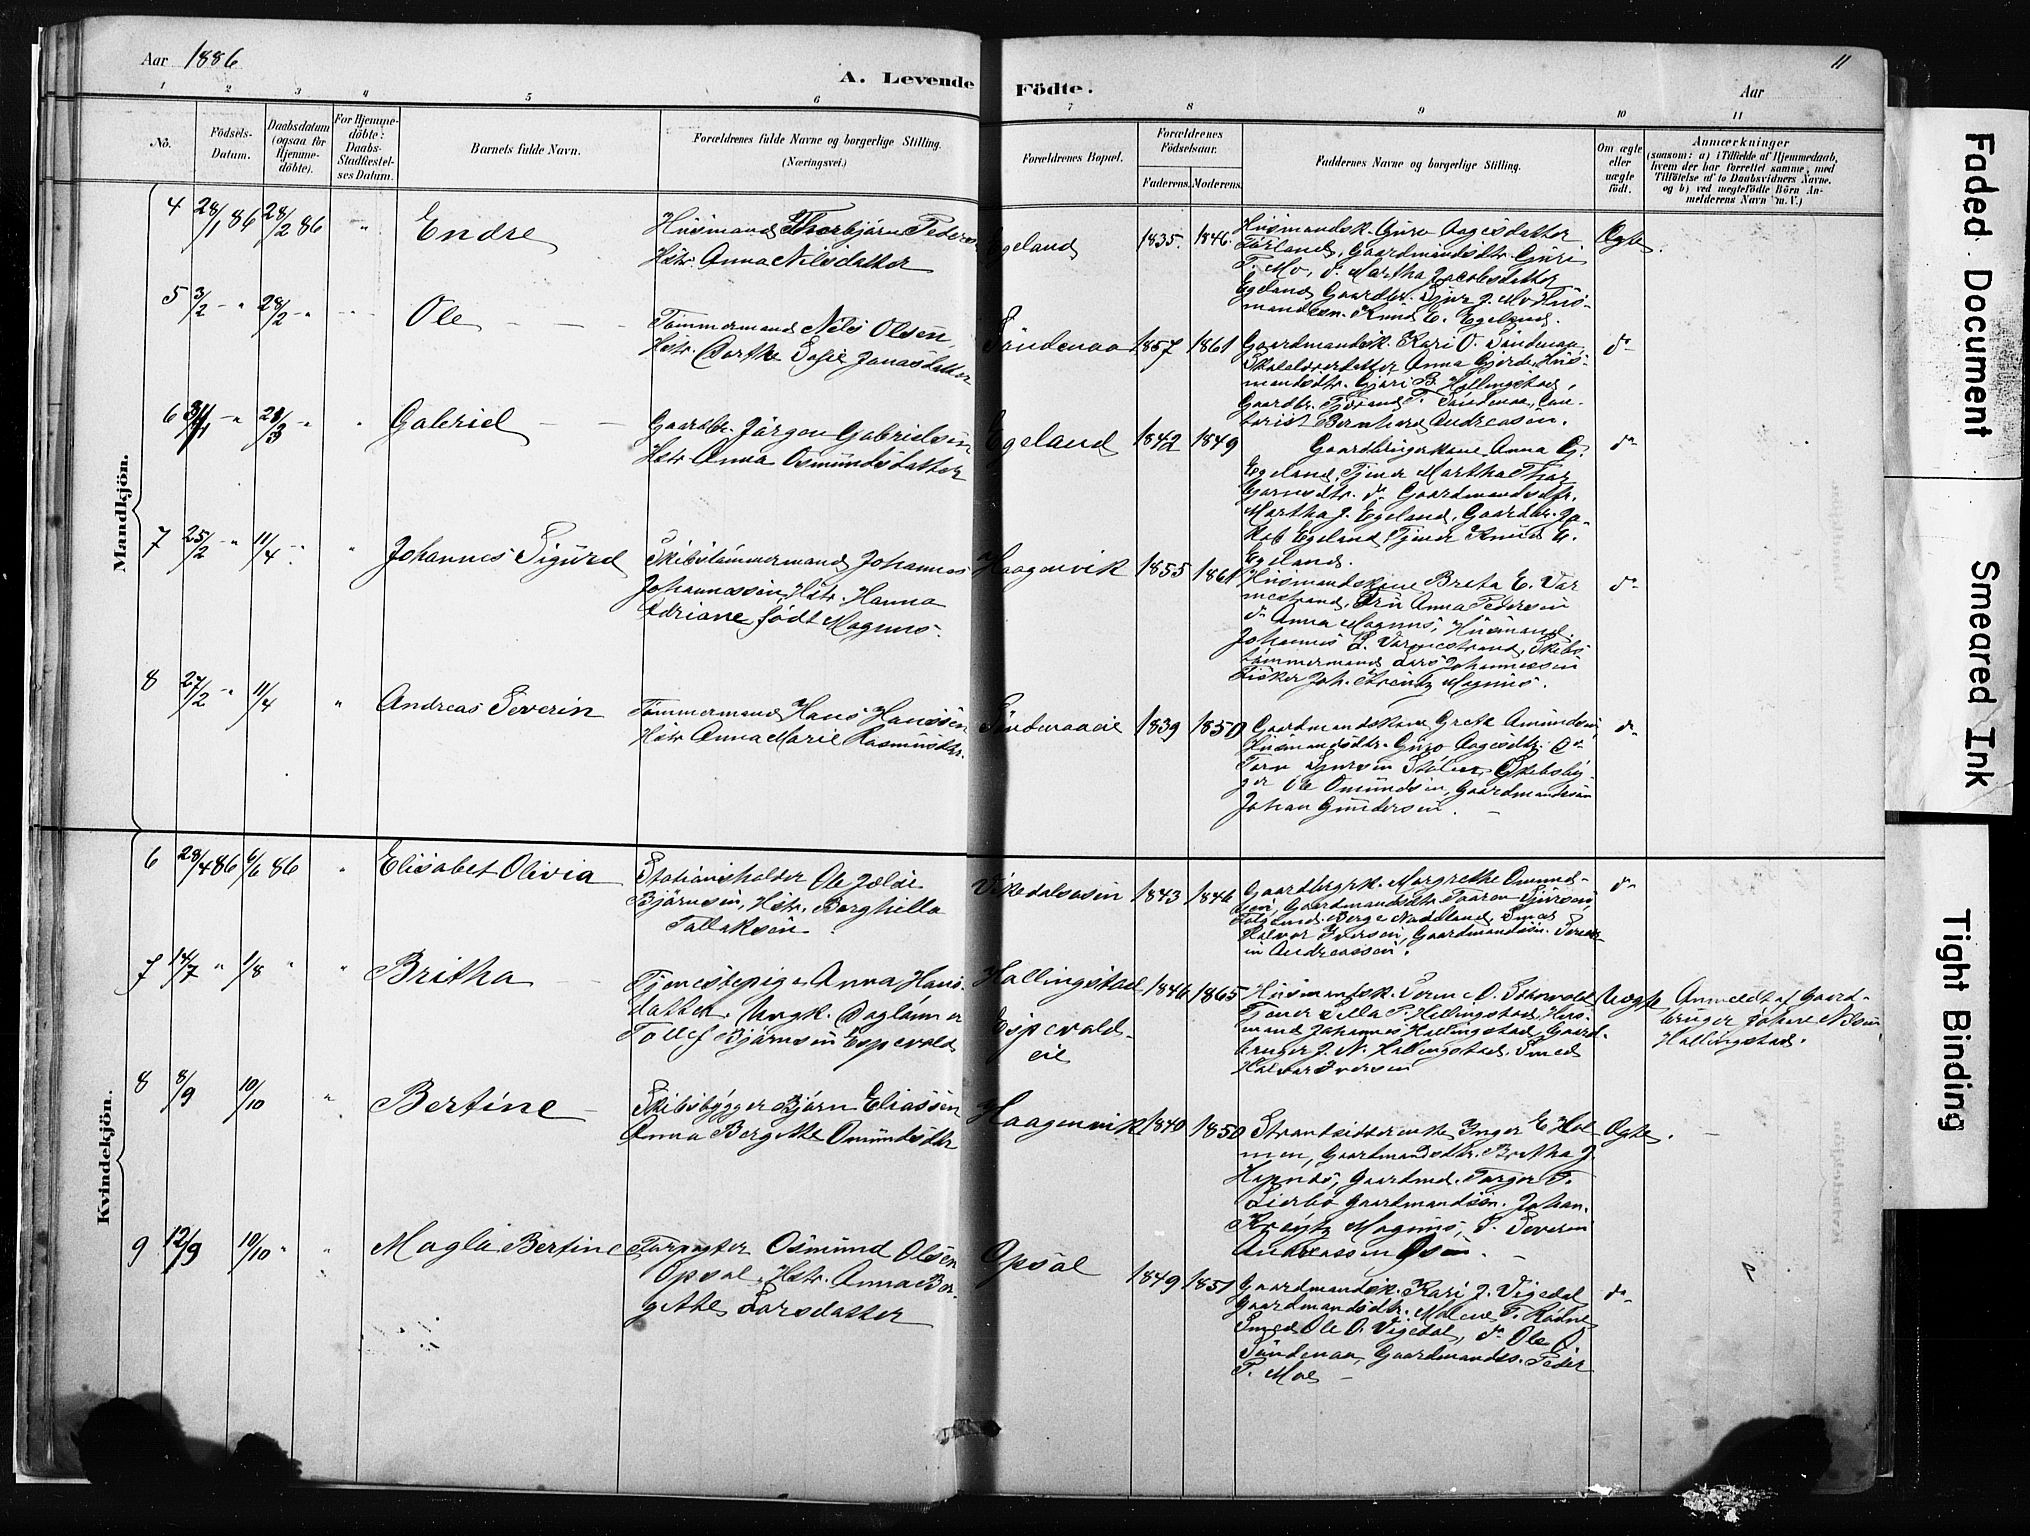 Aar 1886
A. Levende Födte.
11
Aar
1 2 3 4 5 6 7 8 9 10 11
No.
Födsels-
Datum.
Daabsdatum
(ogsaa for
Hjemme-
döbte).
For Hjemme-
döbte:
Daabs-
Stadfæstel-
ses Datum.
Barnets fulde Navn.
Forældrenes fulde Navne og borgerlige Stilling.
(Næringsvei.)
Forældrenes Bopæl.
Forældrenes
Födselsaar.
Faderens. Moderens.
Faddernes Navne og borgerlige Stilling.
Om ægte
eller
uægte
födt.
Anmærkninger
(saasom: a) i Tilfælde af Hjemmedaab,
hvem der har forrettet samme, med
Tilföielse af to Daabsvidners Navne.
og b) ved uægtefödte Börn An-
melderens Navn m. V.)
Mandkjön.
4 28/1 86 28/2 86 " Endre
Husmand Thorbjörn Peders
Hstr. Anna Nilsdatter
Egeland 1835. 1846.
Husmandsk. Guro Aagesdatter
Gaardmandsdtr. Guri
T. Mo, d. Martha Jacobsdatter
Egeland Gaardbr. J. Mo Hus-
mandssn. Knud E. Egeland.
Ægte.
5 3/2 - " 28/2 - " Ole
Tömmermand Nils Olsen,
Hstr. Dorthe Sofie Jonasdatter
Söndenaa 1857 1861
Gaardmandsk. Kari O. Söndenaa
Skolelærerdatter Anna Gjerde, Hus-
mandsdtr. B. Hallingstad,
Gaardbr. T. Söndenaa,
Bernhard Andreasen.
do
6 28/3 - " " Gabriel
Gaardbr. Jörgen Gabrielsen
Hstr. Anna Osmundsdatter
Egeland 1842 1849
Gaardbrugerkone Anna G.
Egeland, Tjener Martha Thor
do Gaardmandsdtr.
Martha J. Egeland, Gaardbr. Ja-
kob Egeland, Tjener Knud E.
Egeland.
do
7 25/2 - " 11/4 - " " Johannes Sigurd
Skibstömmermand Johannes
Johannessen, Hstr. Hanna
Adriane født Magnus.
Haagenvik 1855 1861
Husmandskone Brita E. Var
mestrand, Fru Anna Pedersen
do Anna Magnus, Husmand
Johannes L. Varmestrand, Skibs
tömmermand Lars Johannessen
Fisker Joh. Kreutz Magnus.
do
8 27/2 - " 11/4 " Andreas Severin
Tömmermand Hans Hanssen
Hstr. Anna Marie Rasmusdtr.
Söndenaaeie 1839 1850
Gaardmandskone Grete Amundsen,
Husmandsdtr. Guro Aagesdtr. do
Skibsbyg-
ger Ole Omundsen, Gaardmandssön
Johan Gundersen.
do
Kvindekjön.
6 28/4 86 6/6 86 " Elisabet Olivia
Stationsholder Ole
Björnsen, Hstr. Borghilla
Tallaksen
Vikedalsosen 1843 1846
Gaardbrgrk. Margrethe Omund-
sen, Gaardmandsdtr. Taaren Sjursen
Berge Naddland, Smed
Halvor Iversen, Gaardmandssn. Sever
in Andreassen.
do
7 14/7 " 1/8 " " Britha
Tjenestepige Anna Hans-
datter, Ungk. Daglönner
Tollef Björnsen Espevold
Hallingstad
Espevolds-
eie
1846 1865
Husmandsk. O. Stensvold
Tjener P. Hallingstad, Hus-
mand Johannes Hallingstad, Gaard-
bruger J. N. Hallingstad, Smed
Halvor Iversen
Uægte
Anmeldt af Gaard-
bruger Johan Nilsen
Hallingstad.
8 8/9 10/10 " Bertine
Skibsbygger Björn Eliassen
Anna Bergitte Omundsdtr
Haagenvik 1840 1850
Strandsidderenke Inger E. Hol
men, Gaardmandsdtr. Britha J.
Gaardmd. Torger T.
Lierbö Gaardmandssön. Johan
Kreutz Magnus, S. Severin
Andreassen Osen.
Ægte.
9 12/9 10/10 " " Magla Bertine
Forpagter Osmund Olsen
Opsal, Hstr. Anna Ber-
gitte Larsdatter
Opsal 1849 1851
Gaardmandsk. Kari J. Vigedal
Gaardmandsdtr. Malene T. Rödne
Smed Ole O. Vigedal, do Ole O
Söndenaa, Gaardmandss. Peder
T. Moe
do
Faded Document
Smeared Ink
Tight Binding